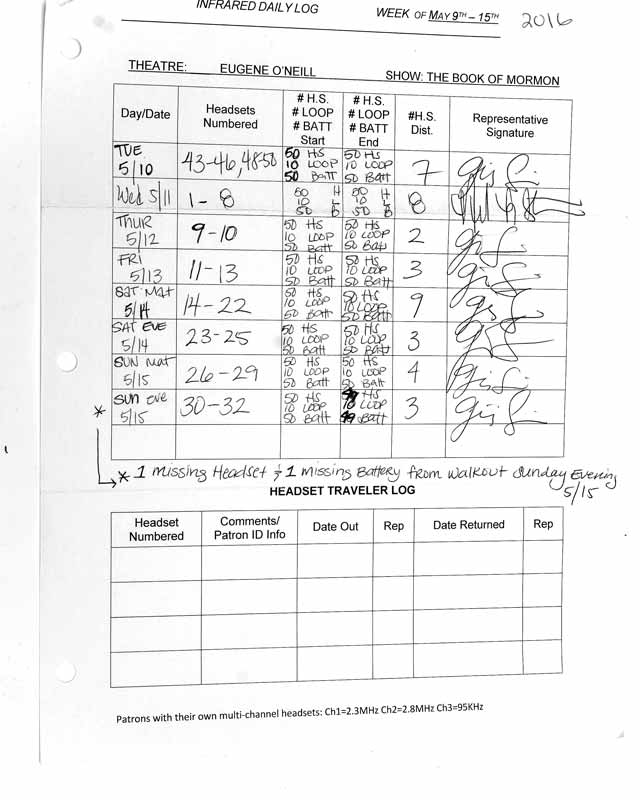 INFRARED DAILY LOG WEEK OF MAY 9TH – 15TH 2016
THEATRE: EUGENE O'NEILL SHOW: THE BOOK OF MORMON
Day/Date Headsets Numbered # H.S. # LOOP # BATT Start # H.S. # LOOP # BATT End #H.S. Dist. Representative Signature
TUE 5/10 43-46, 48-50 50 HS 10 LOOP 50 BATT 50 HS 10 LOOP 50 BATT 7
Wed 5/11 1-8 50 H 10 L 50 B 50 H 10 L 50 B 8
THUR 5/12 9-10 50 HS 10 LOOP 50 Batt 50 HS 10 LOOP 50 Batt 2
FRI 5/13 11-13 50 HS 10 LOOP 50 Batt 50 HS 10 LOOP 50 Batt 3
SAT Mat 5/14 14-22 50 HS 10 LOOP 50 Batt 50 HS 10 LOOP 50 Batt 9
SAT EVE 5/14 23-25 50 HS 10 LOOP 50 Batt 50 HS 10 LOOP 50 Batt 3
SUN Mat 5/15 26-29 50 HS 10 LOOP 50 Batt 50 HS 10 LOOP 50 Batt 4
* SUN eve 5/15 30-32 50 HS 10 LOOP 50 Batt 49 HS 10 LOOP 49 Batt 3
* 1 Missing Headset & 1 Missing Battery from Walkout Sunday Evening
5/15
HEADSET TRAVELER LOG
Headset Numbered Comments/ Patron ID Info Date Out Rep Date Returned Rep
Patrons with their own multi-channel headsets: Ch1=2.3MHz Ch2=2.8MHz Ch3=95KHz